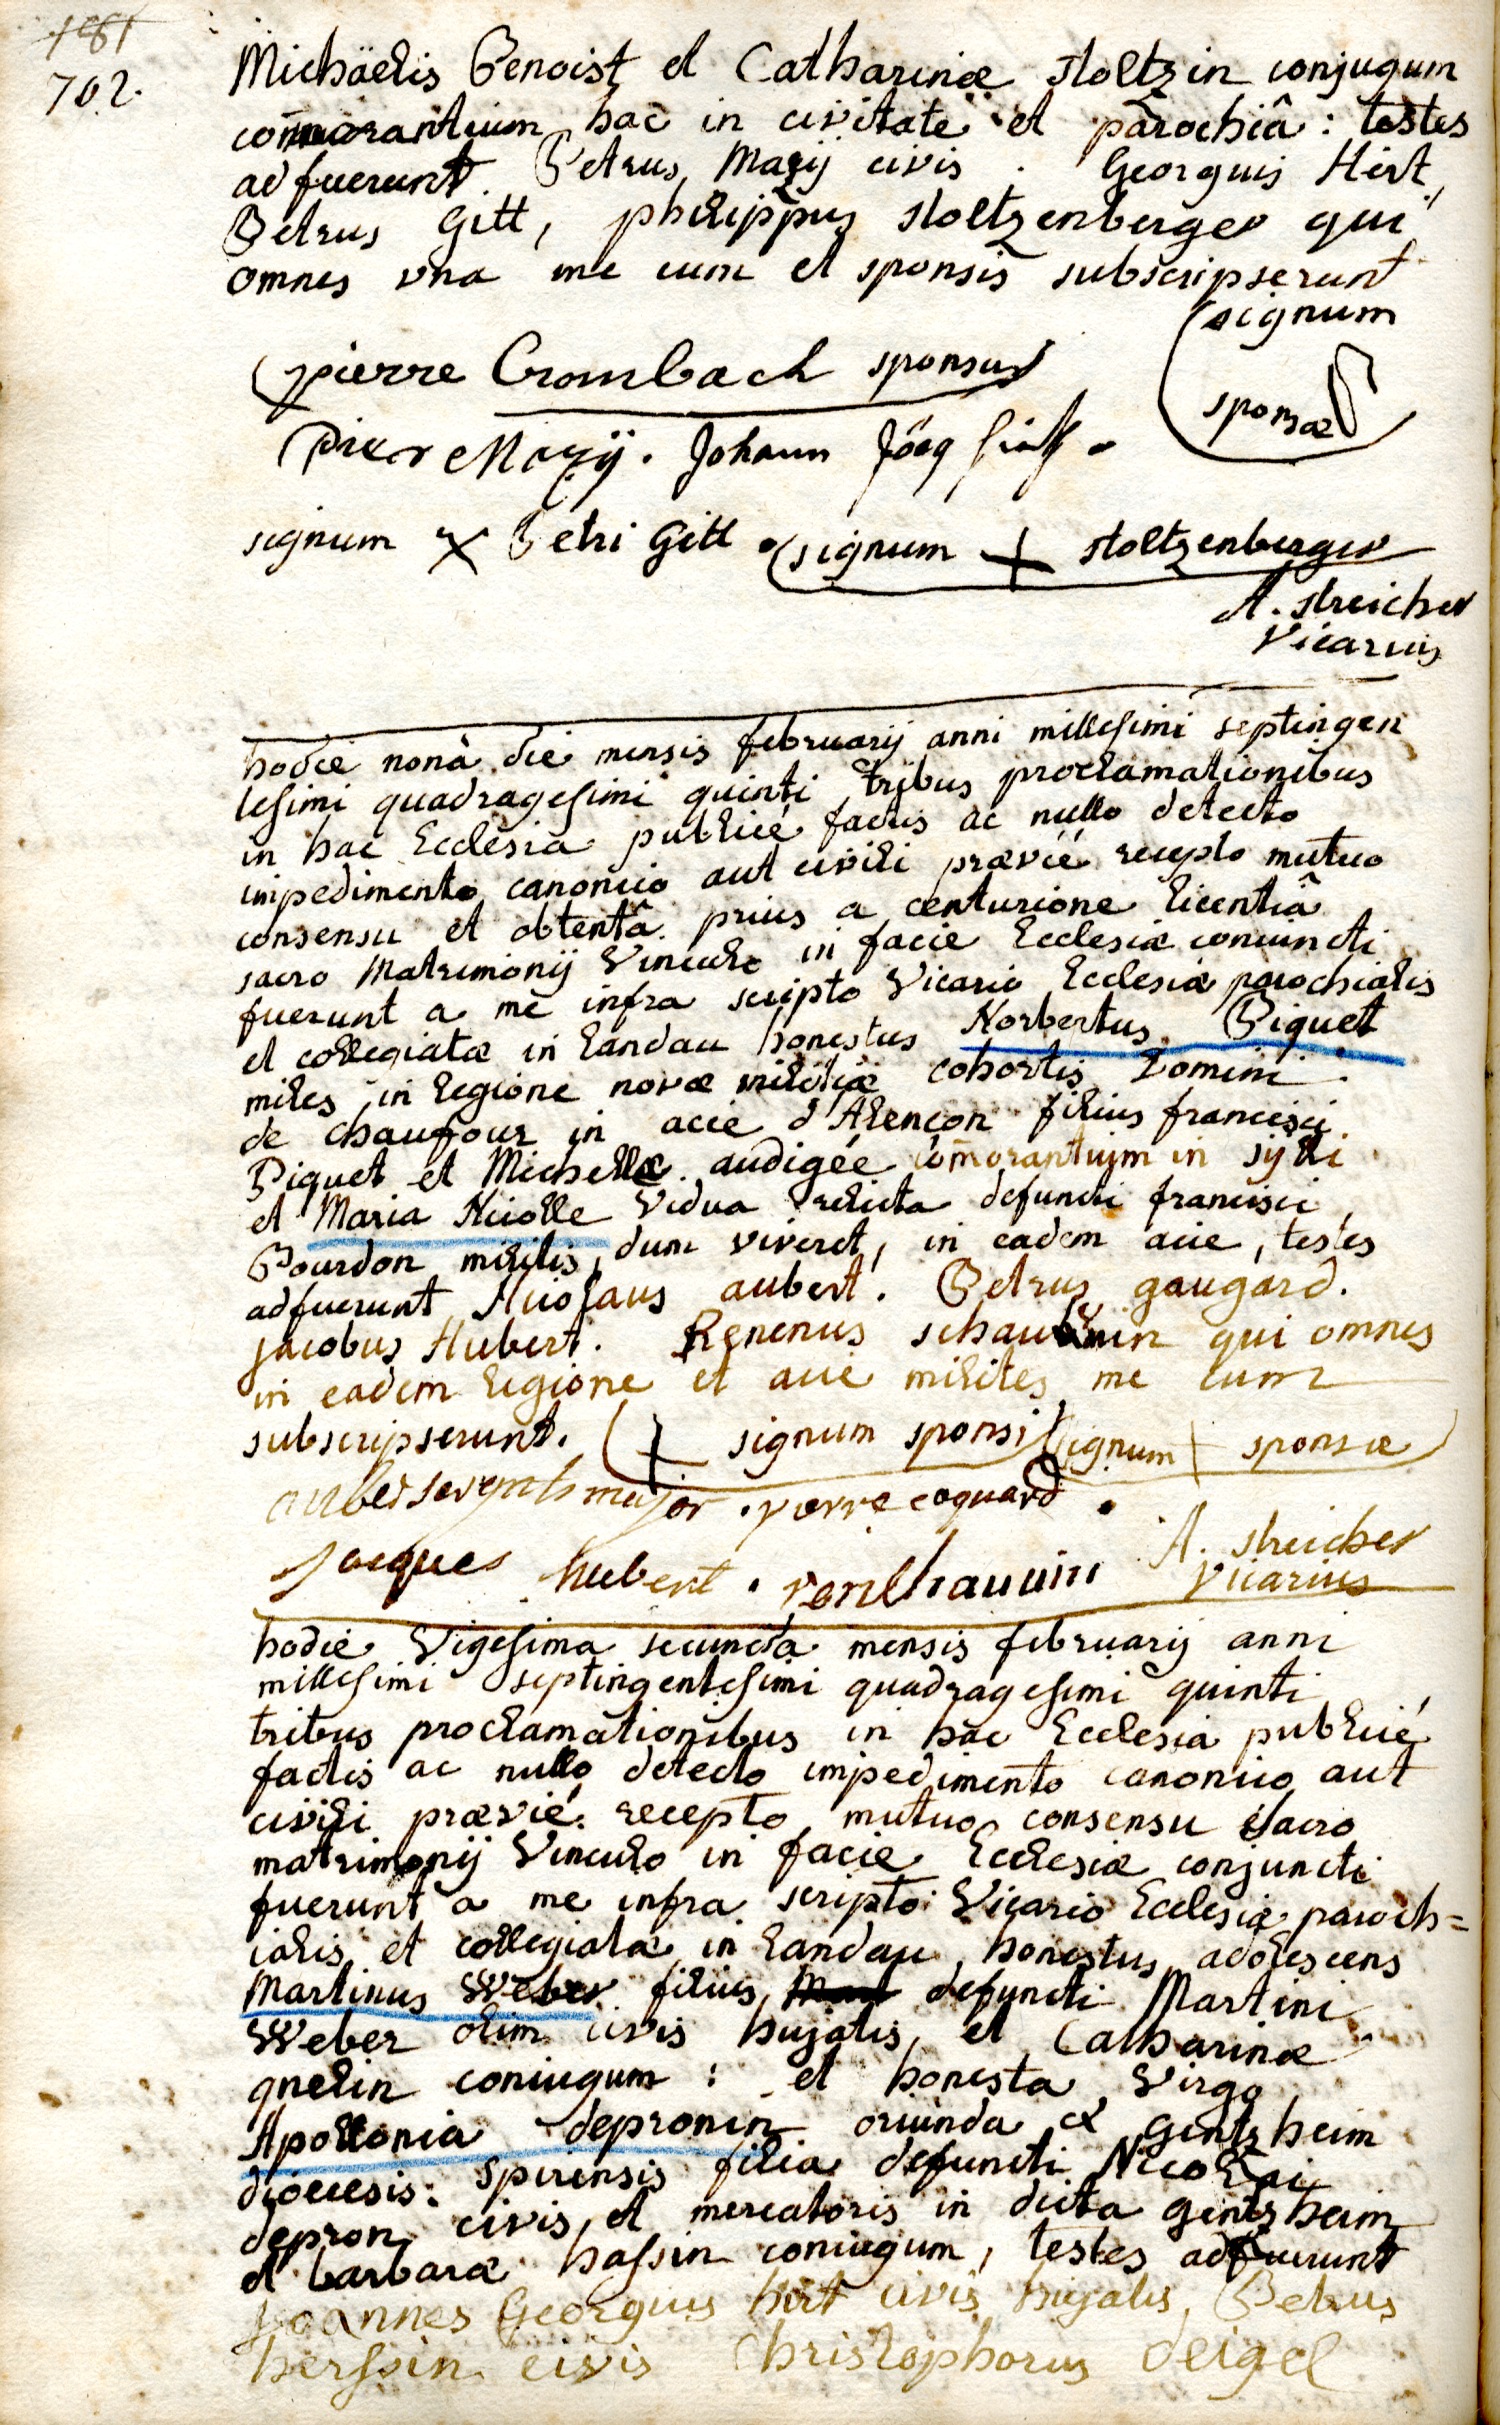 181
702.
Michäelis Benoist et Catharinæ stoltzin conjugum
com̄orantium hac in civitate et parochiâ: testes
adfuerunt. Petrus Mazij civis. Georgius Hirt,
Petrus Gitt, philippus stoltzenberger qui
omnes vna me cum et sponsis subscripserunt
signum
sponsæ
pierre Crombach sponsus
pier Mazÿ. Johann Jörg Hirt.
signum x Petri Gitt. signum + stoltzenberger
A. streicher
Vicarius
hodie nonâ die mensis februarij anni millesimi septingen
tesimi quadragesimi quinti tribus proclamationibus
in hac Ecclesia publicé factis ac nullo detecto
impedimento canonico aut civili prævié recepto mutuo
consensu et obtentâ prius a centurione licentiâ
sacro Matrimonij Vinculo in facie Ecclesiæ coniuncti
fuerunt a me infra scripto Vicario Ecclesiæ parochialis
et collegiatæ in Landau honestus Norbertus Piquet
miles in legione novæ militiæ cohortis Domini
de chaufour in acie d'Alençon filius francisci
Piquet et Michellæ audigée com̄orantium in sylli
et Maria Niolle Vidua relicta defuncti francisci
Bourdon militis, dum viveret, in eadem acie, testes
adfuerunt Nicolaus aubert. Petrus gaugard.
jacobus Hubert. Renenus schauvin qui omnes
in eadem legione et acie milites me cum
subscripserunt. + signum sponsi signum + sponsæ
auber sergant major. pierre coquard.
jacques hubert. A. streicher
Vicarius
hodie Vigesima secunda mensis februarij anni
millesimi septingentesimi quadragesimi quinti
tribus proclamationibus in hac Ecclesia publicé
factis ac nullo detecto impedimento canonico aut
civili prævié recepto mutuo consensu sacro
matrimonij Vinculo in facie Ecclesiæ conjuncti
fuerunt a me infra scripto Vicario Ecclesiæ paroch=
ialis et collegiatæ in Landau honestus adolescens
Martinus Weber filius defuncti Martini
Weber olim civis hujatis, et Catharinæ
gnelin coniugum: et honesta Virgo
Apollonia depronin oriunda ex Gentzheim
diœcesis spirensis filia defuncti Nicolai
depron civis et mercatoris in dicta gentzheim
et barbaræ hassin coniugum, testes adfuerunt
joannes Georgius hirt civis hujatis, Petrus
herssin civis Christophorus deigel